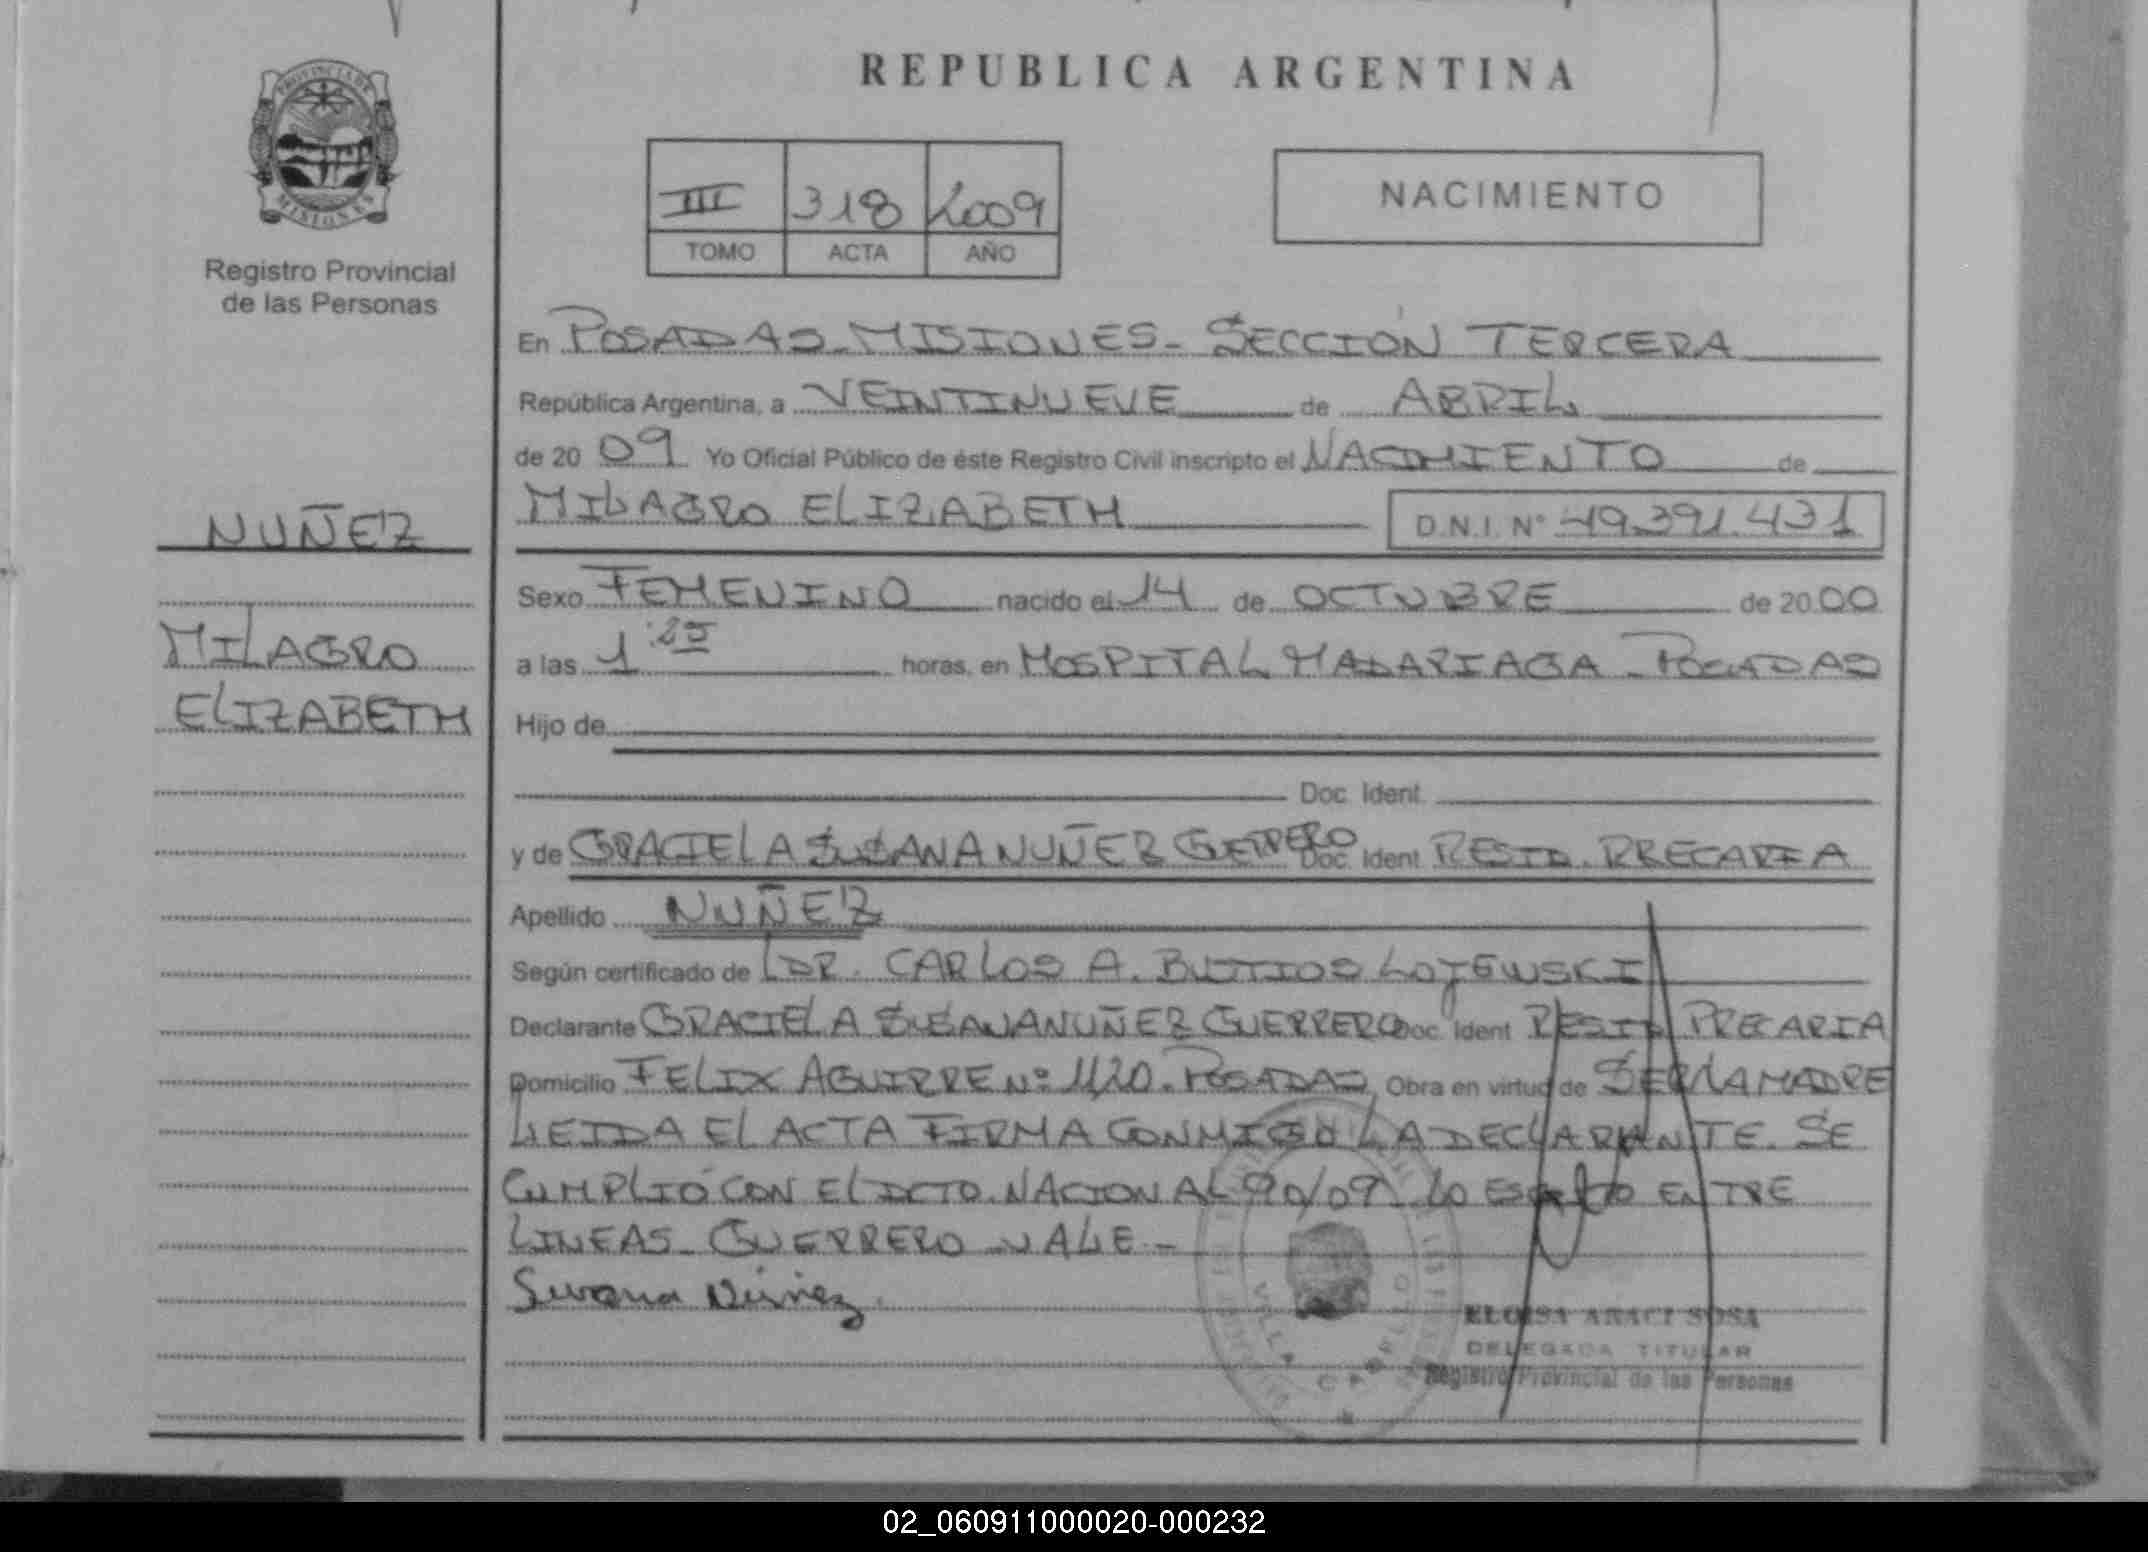 REPUBLICA ARGENTINA
PROVINCIA DE MISIONES
Registro Provincial
de las Personas
III 318 2009
TOMO ACTA AÑO
NACIMIENTO
En POSADAS - MISIONES - SECCIÓN TERCERA
República Argentina, a VEINTINUEVE de ABRIL
de 20 09 Yo Oficial Público de éste Registro Civil inscripto el NACIMIENTO de
MILAGRO ELIZABETH D.N.I. N° 49.391.431
NUÑEZ
MILAGRO
ELIZABETH
Sexo FEMENINO nacido el 14 de OCTUBRE de 20 00
a las 1:25 horas, en HOSPITAL MADARIAGA - POSADAS
Hijo de
Doc. Ident.
y de GRACIELA SUSANA NUÑEZ GUERRERO Doc. Ident. RESID. PRECARIA
Apellido NUÑEZ
Según certificado de DR. CARLOS A. LOJEWSKI
Declarante GRACIELA SUSANA NUÑEZ GUERRERO Doc. Ident RESID PRECARIA
Domicilio FELIX AGUIRRE Nº 1120 - POSADAS Obra en virtud de SER LA MADRE
LEIDA EL ACTA FIRMA CONMIGO LA DECLARANTE. SE
CUMPLIÓ CON EL DCTO. NACIONAL 90/09. LO ESCRITO ENTRE
LINEAS - GUERRERO - VALE -
Susana Núñez.
ELOISA ARACI SOSA
DELEGADA TITULAR
Registro Provincial de las Personas
02_060911000020-000232